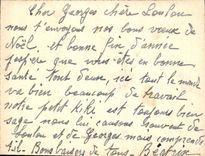 Cher Georges chère Loulou
nous t'envoyons nos bons vœux de
Noël, et bonne fin d'année
j'espère que vous êtes en bonne
santé tout deux, ici tout le monde
va bien beaucoup de travail
notre petit kiki est toujours bien
sage nous lui causons souvent de
Loulou et de Georges mais comprends
t'il. Bons baisers de tous. Béatrice